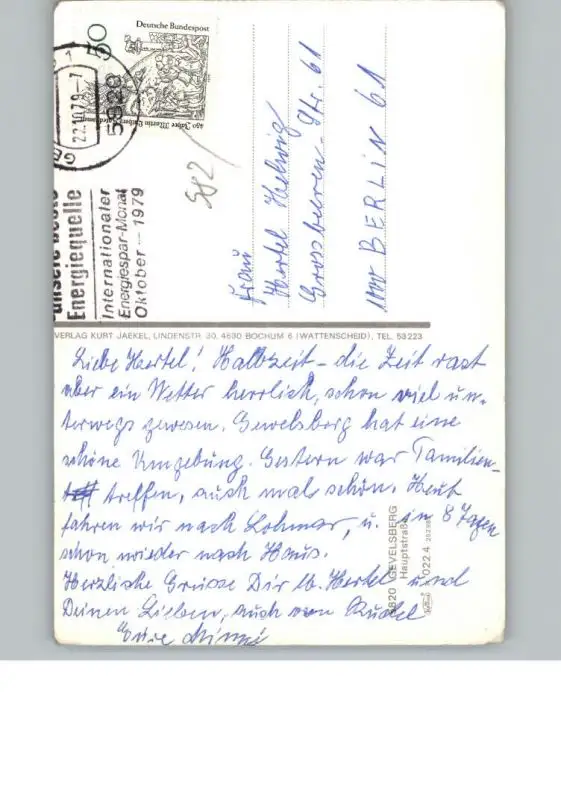 Deutsche Bundespost
50
450 Jahre Martin Luthers Katechismus
5820
22.10.79-7
GE
1
unsere beste
Energiequelle
Internationaler
Energiespar-Monat
Oktober – 1979
582
Frau
Hertel Helwig
Grossbeeren-Str. 61
1000 BERLIN 61
VERLAG KURT JAEKEL, LINDENSTR. 30, 4630 BOCHUM 6 (WATTENSCHEID), TEL. 53223
Liebe Hertel! Halbzeit – die Zeit rast
aber ein Wetter herrlich, schon viel un-
terwegs gewesen. Gevelsberg hat eine
schöne Umgebung. Gestern war Familien-
treffen, auch mal schön. Heut
fahren wir nach Lohmar, u. in 8 Tagen
schon wieder nach Haus.
Herzliche Grüsse Dir lb. Hertel und
Deinen Lieben, auch von Rudel
Eure Mimi
5820 GEVELSBERG
Hauptstraße
022 4